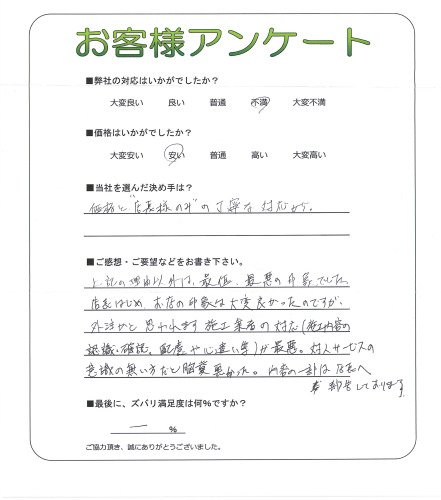 お客様アンケート
■弊社の対応はいかがでしたか？
大変良い 良い 普通 不満 大変不満
■価格はいかがでしたか？
大変安い 安い 普通 高い 大変高い
■当社を選んだ決め手は？
価格と"店長様のみ"の丁寧な対応から。
■ご感想・ご要望などをお書き下さい。
上記の理由以外は、最低、最悪の印象でした。
店長はじめ お店の印象は大変良かったのですが、
外注かと思われます施工業者の対応(施工内容の
認識・確認、配慮や心遣い等)が最悪。対人サービスの
意識の無い方だと 悪かった。内容の一計は店長へ
報告しております
■最後に、ズバリ満足度は何%ですか？
— %
ご協力頂き、誠にありがとうございました。